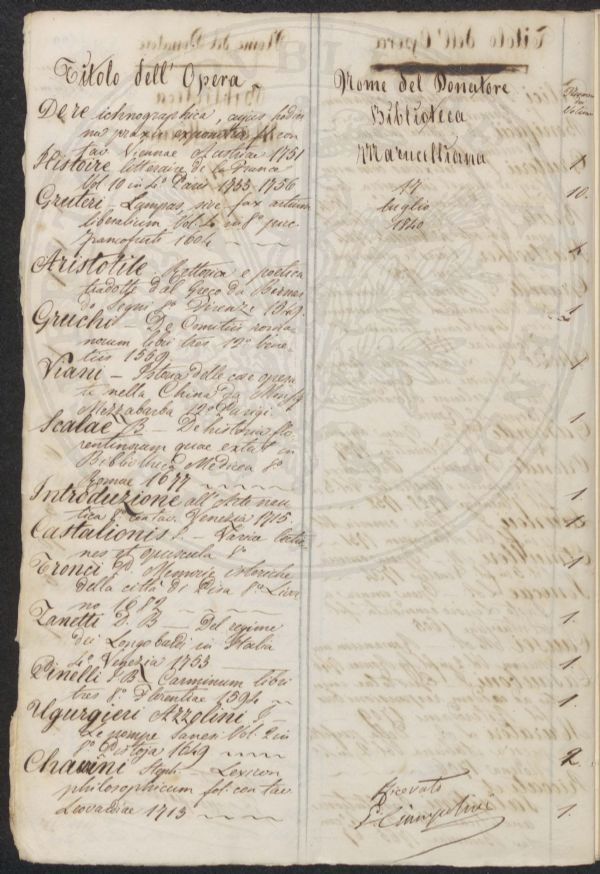 Titolo dell' Opera
Nome del Donatore
Biblioteca
Marucelliana
17
luglio
1840
De re ichnographica, cujus hodier
na praxis exponitur fol. con
tav. Viennae Austriae 1751
1
Histoire litteraire de la France
Vol 10 in 4° Paris 1733-1756
10.
Gruteri - Lampas, sive fax artium
liberalium Vol. 4 in 8°
Francofurti 1604
4
Aristotile Rettorica e poetica
tradotte dal Greco da Bernar
do Segni 8° Firenze 1549
1
Gruchi - De Comitiis roma
norum libri tres 12° Vene
tiis 1559
1
Viani - Istoria delle cose opera
te nella China da Monsig
Mezzabarba 12° Parigi
1
Scalae B - De historia flo
rentinorum quae extat in
Bibliotheca Medicea 8°
Romae 1677
1
Introduzione all' Arte nau
tica 8° con tav. Venezia 1715.
1
Castalionis - Varia lati
nes et opuscula 8°
1
Tronci P. Memorie istoriche
della città di Pisa 8° Livor
no 1682
1.
Zanetti D. B - Del regime
dei Longobardi in Italia
4° Venezia 1753
1.
Pinelli J B Carminum libri
tres 8° Florentiae 1594
1.
Ugurgieri Azzolini J
Le pompe Sanesi Vol. 2 in
8° Pistoja 1649
2.
Chauvini Steph. - Lexicon
philosophicum fol. con tav
Leovardiae 1713
1.
Ricevuto
P. Ciampolini